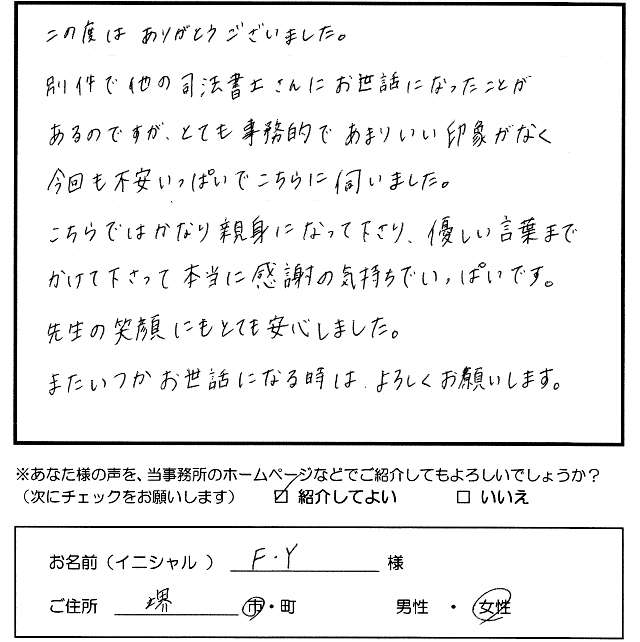 この度は ありがとうございました。
別件で他の司法書士さんにお世話になったことが
あるのですが、とても事務的であまりいい印象がなく
今回も不安いっぱいでこちらに伺いました。
こちらではかなり親身になって下さり、優しい言葉まで
かけて下さって本当に感謝の気持ちでいっぱいです。
先生の笑顔にもとても安心しました。
またいつかお世話になる時は、よろしくお願いします。
※あなた様の声を、当事務所のホームページなどでご紹介してもよろしいでしょうか?
(次にチェックをお願いします) ☑ 紹介してよい □ いいえ
お名前(イニシャル ) F・Y 様
ご住所 堺 市・町 男性 ・ 女性